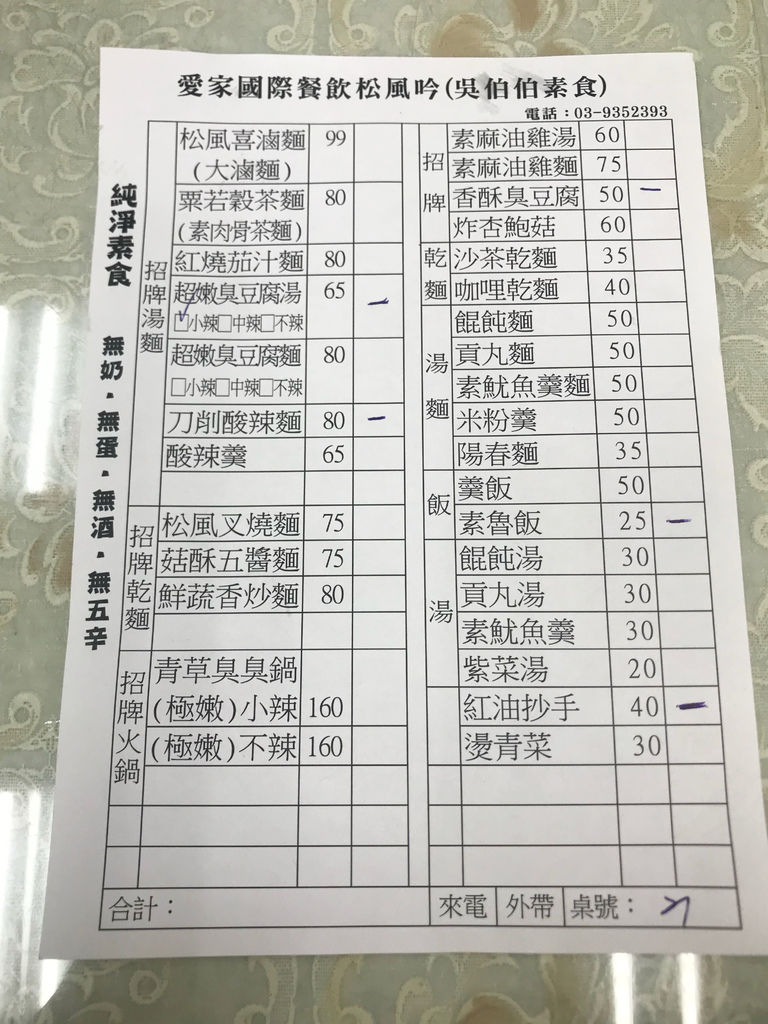 愛家國際餐飲松風吟(吳伯伯素食)
電話:03-9352393
純淨素食 無奶・無蛋・無酒・無五辛
招牌湯麵
松風喜滷麵 99
(大滷麵)
粟若穀茶麵 80
(素肉骨茶麵)
紅燒茄汁麵 80
超嫩臭豆腐湯 65 一
☑小辣□中辣□不辣
超嫩臭豆腐麵 80
□小辣□中辣□不辣
刀削酸辣麵 80 一
酸辣羹 65
招牌乾麵
松風叉燒麵 75
菇酥五醬麵 75
鮮蔬香炒麵 80
招牌火鍋
青草臭臭鍋
(極嫩)小辣 160
(極嫩)不辣 160
招牌
素麻油雞湯 60
素麻油雞麵 75
香酥臭豆腐 50 一
炸杏鮑菇 60
乾麵
沙茶乾麵 35
咖哩乾麵 40
湯麵
餛飩麵 50
貢丸麵 50
素魷魚羹麵 50
米粉羹 50
陽春麵 35
飯
羹飯 50
素魯飯 25 一
湯
餛飩湯 30
貢丸湯 30
素魷魚羹 30
紫菜湯 20
紅油抄手 40 一
燙青菜 30
合計:
來電 外帶 桌號: